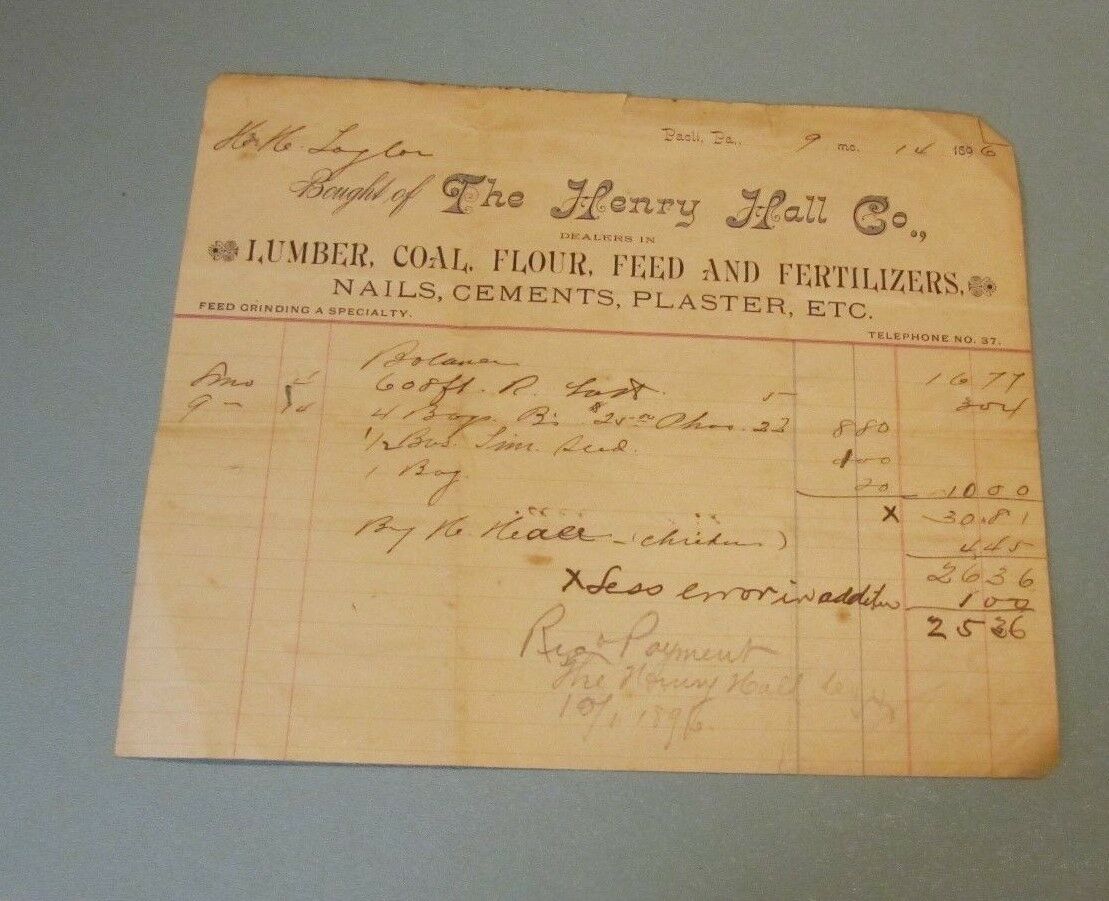 Paoli, Pa., 9 mo. 14 1896
H. Taylor
Bought of The Henry Hall Co.,
DEALERS IN
LUMBER, COAL, FLOUR, FEED AND FERTILIZERS,
NAILS, CEMENTS, PLASTER, ETC.
FEED GRINDING A SPECIALTY.
TELEPHONE NO. 37.
Balance 1677
608 ft. R. 5 304
9 14 4 Bags $25.00 Phos. 22 880
1/2 Bus. Tim. Seed. 100
1 Bag. 20 1000
X 30.81
By H. Hall (chicken) 445
2636
X Less error in addition 100
2536
Rec'd Payment
The Henry Hall Co.
10/1 1896